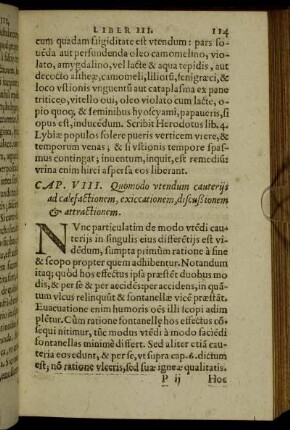 LIBER III. 114
cum quadam frigiditate est vtendum: pars fo-
uẽda aut perfundenda oleo camomelino, vio-
lato, amygdalino, vel lacte & aqua tepidis, aut
decocto altheæ, camomeli, liliorũ, fenigræci, &
loco vstionis vnguentũ aut cataplasma ex pane
triticeo, vitello oui, oleo violato cum lacte, o-
pio quoq; & seminibus hyoscyami, papaueris, si
opus est, inducẽdum. Scribit Herodotus lib. 4.
Lybiæ populos solere pueris verticem vrere, &
temporum venas; & si vstionis tempore spas-
mus contingat; inuentum, inquit, est remediũ:
vrina enim hirci aspersa eos liberant.
CAP. VIII. Quomodo vtendum cauterijs
ad calefactionem, exiccationem, discussionem
& attractionem.
NVnc particulatim de modo vtẽdi cau-
terijs in singulis eius differẽtijs est vi-
dẽdum, sumpta primùm ratione à fine
& scopo propter quem adhibentur. Notandum
itaq; quòd hos effectus ipsa præstẽt duobus mo-
dis, & per se & per accidẽs: per accidens, in quã-
tum vlcus relinquũt & fontanellæ vicẽ præstãt.
Euacuatione enim humoris oẽs illi scopi adim
plẽtur. Cùm ratione fontanellę hos effectus cõ-
sequi nitimur, tũc modus vtẽdi à modo faciẽdi
fontanellas minimè differt. Sed aliter etiã cau-
teria eos edunt, & per se, vt supra cap. 6. dictum
est; nõ ratione vlceris, sed suæ igneæ qualitatis.
P ij Hoc